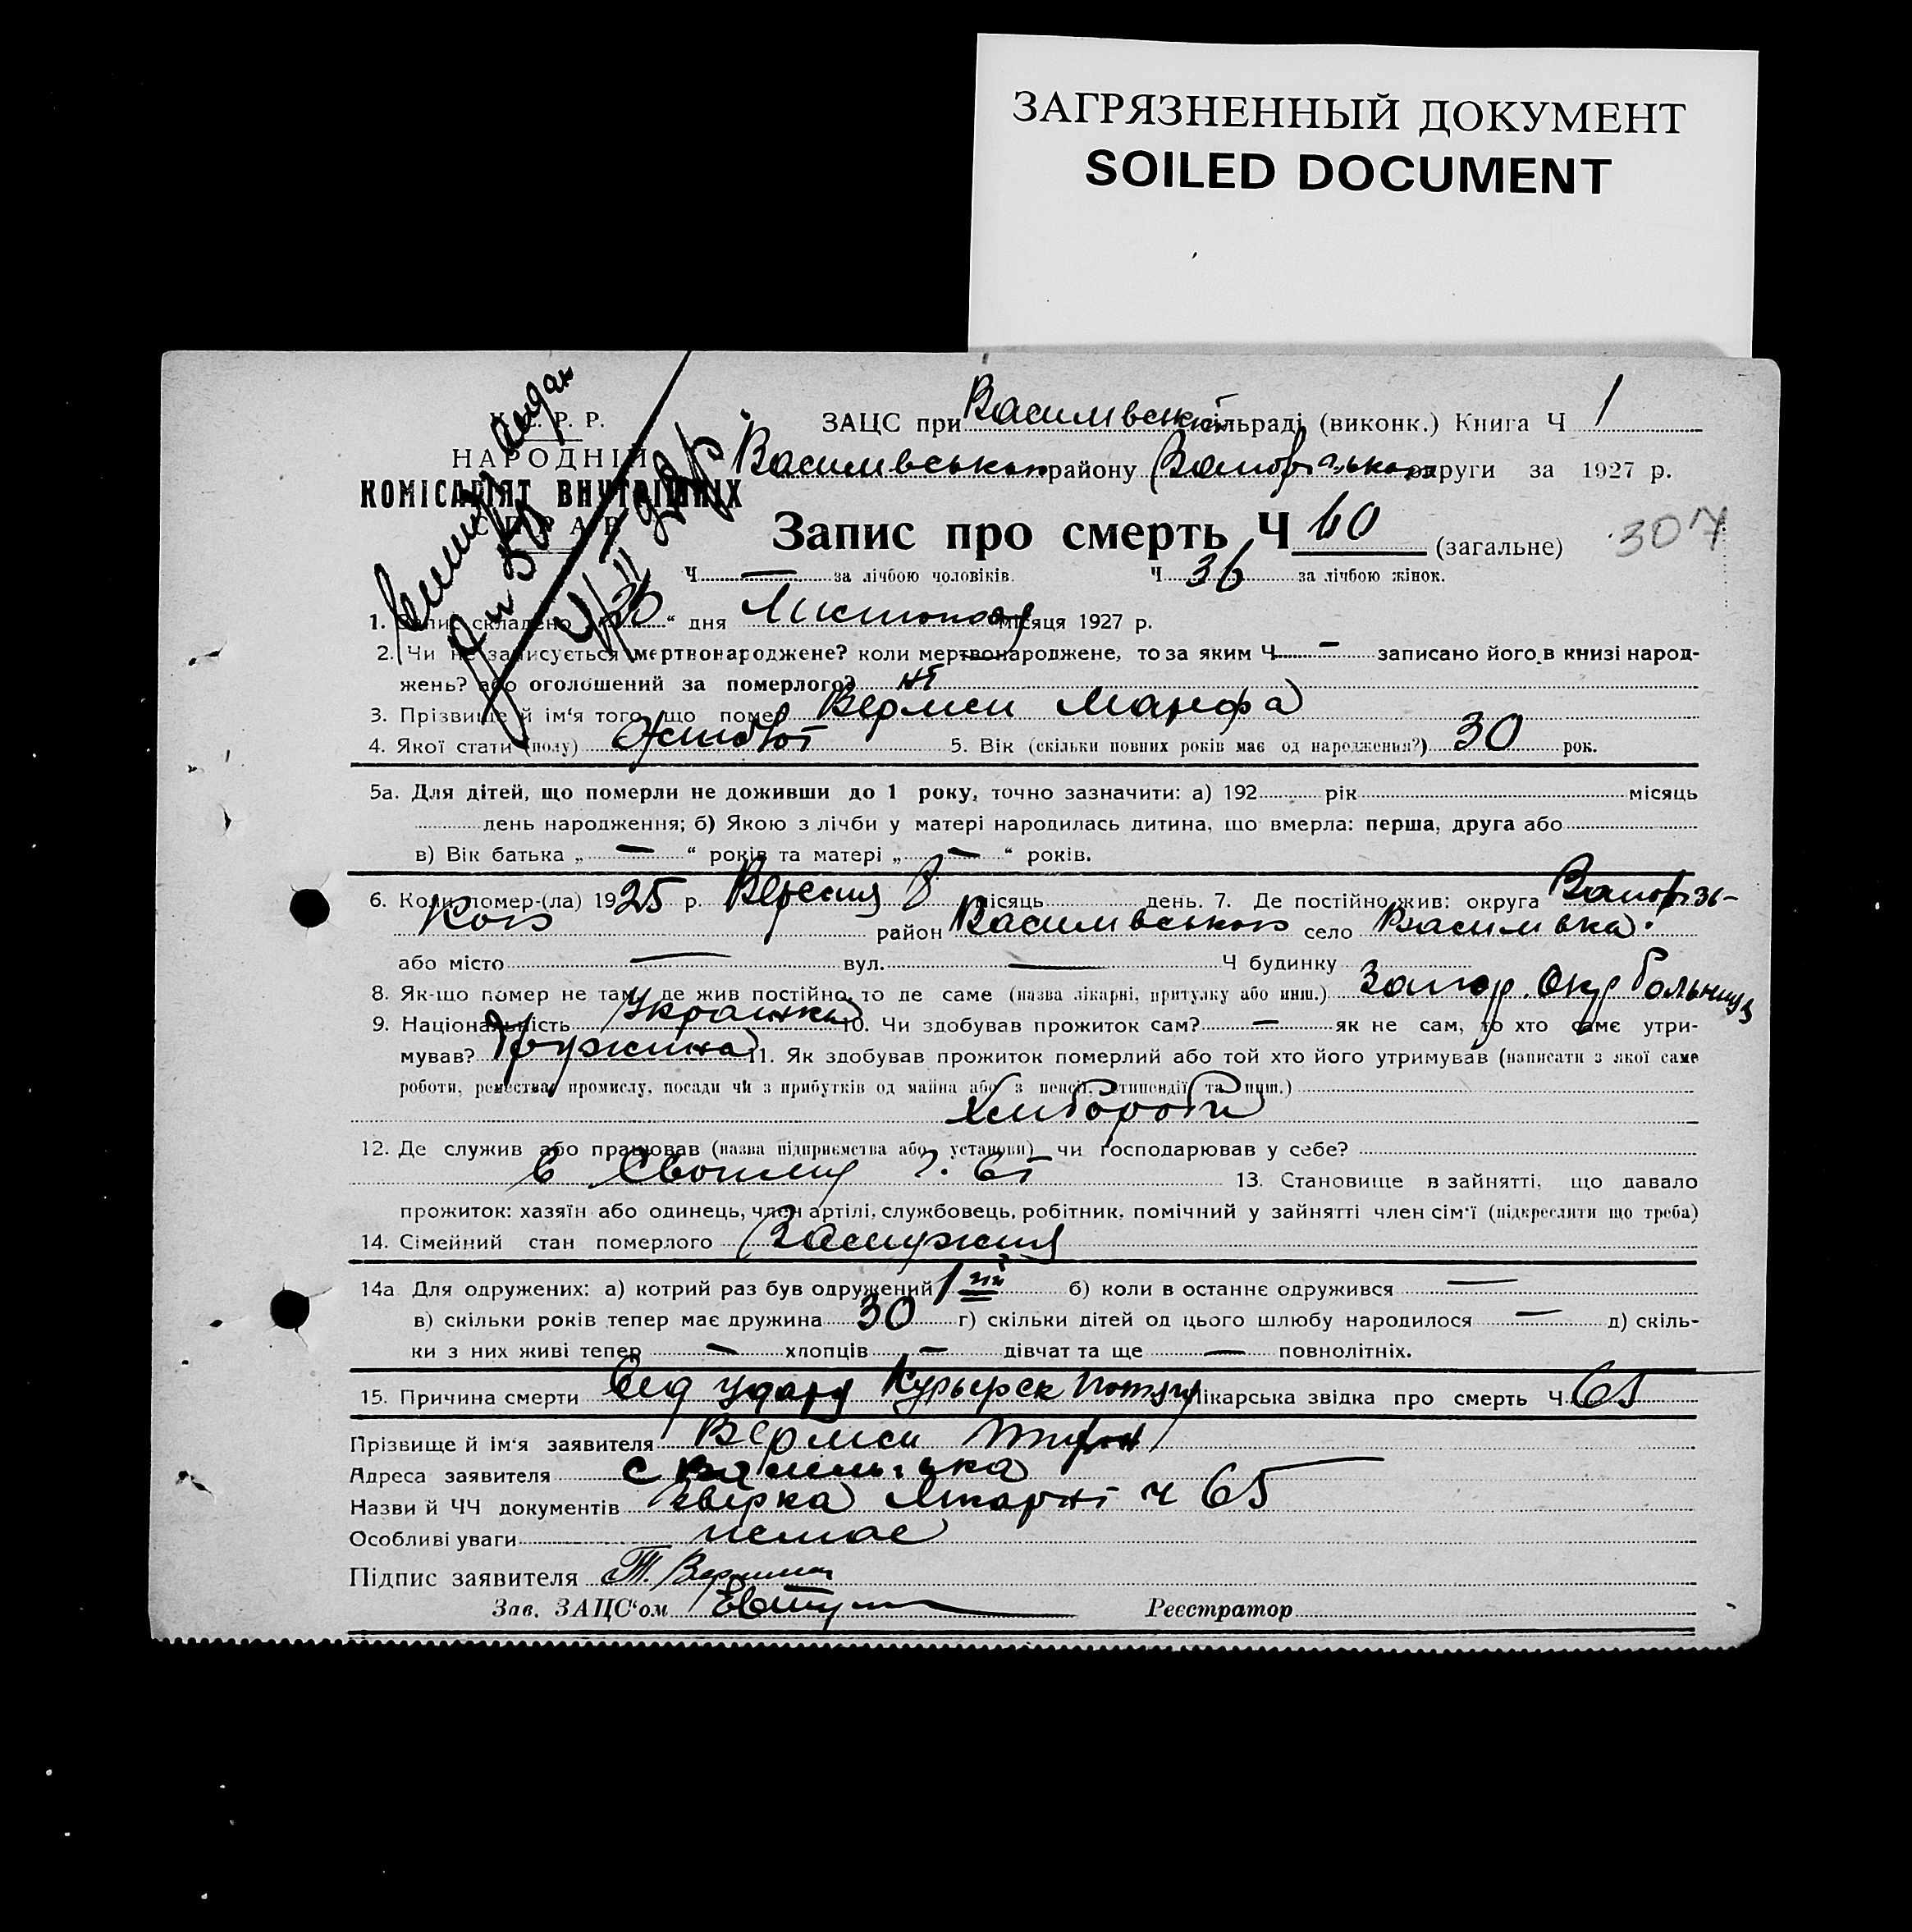 ЗАГРЯЗНЕННЫЙ ДОКУМЕНТ
SOILED DOCUMENT
У. С. Р. Р.
НАРОДНІЙ
КОМІСАРІЯТ ВНУТРІШНІХ
СПРАВ
ЗАЦС при Василівській сільраді (виконк.) Книга Ч 1
Василівського району Запорізького округи за 1927 р.
Запис про смерть Ч 60 (загальне) 307
Ч — за лічбою чоловіків. Ч 36 за лічбою жінок.
1. Запис складено „26“ дня Листопада місяця 1927 р.
2. Чи не записується мертвонароджене? коли мертвонароджене, то за яким Ч — записано його в книзі народ-
жень? або оголошений за померлого? ні
3. Прізвище й ім'я того, що помер Марфа
4. Якої стати (полу) 5. Вік (скільки повних років має од народження?) 30 рок.
5а. Для дітей, що померли не доживши до 1 року, точно зазначити: а) 192 рік місяць
день народження; б) Якою з лічби у матері народилась дитина, що вмерла: перша, друга або
в) Вік батька „ — “ років та матері „ — “ років.
6. Коли помер-(ла) 1925 р. Вересня 8 місяць день. 7. Де постійно жив: округа Запорізь-
кого район Василівського село Василівка.
або місто — вул. — Ч будинку
8. Як-що помер не там, де жив постійно, то де саме (назва лікарні, притулку або инш.) Запор. Окр больниця
9. Національність Українка 10. Чи здобував прожиток сам? — як не сам, то хто саме утри-
мував? Дружина 11. Як здобував прожиток померлий або той хто його утримував (написати з якої саме
роботи, ремества, промислу, посади чи з прибутків од майна або з пенсії, стипендії та инш.)
Хлібороби
12. Де служив або працював (назва підприємства або установи) чи господарював у себе?
в Своему 13. Становище в зайнятті, що давало
прожиток: хазяїн або одинець, член артілі, службовець, робітник, помічний у зайнятті член сім'ї (підкреслити що треба)
14. Сімейний стан померлого Замужня
14а Для одружених: а) котрий раз був одружений 1 ий б) коли в останнє одружився —
в) скільки років тепер має дружина 30 г) скільки дітей од цього шлюбу народилося — д) скіль-
ки з них живі тепер — хлопців — дівчат та ще — повнолітніх.
15. Причина смерти Від удару Курьерск потягу Лікарська звідка про смерть Ч 65
Прізвище й ім'я заявителя
Адреса заявителя с Василівка
Назви й ЧЧ документів Лікарні ч 65
Особливі уваги немає
Підпис заявителя Т.
Зав. ЗАЦС'ом Реєстратор